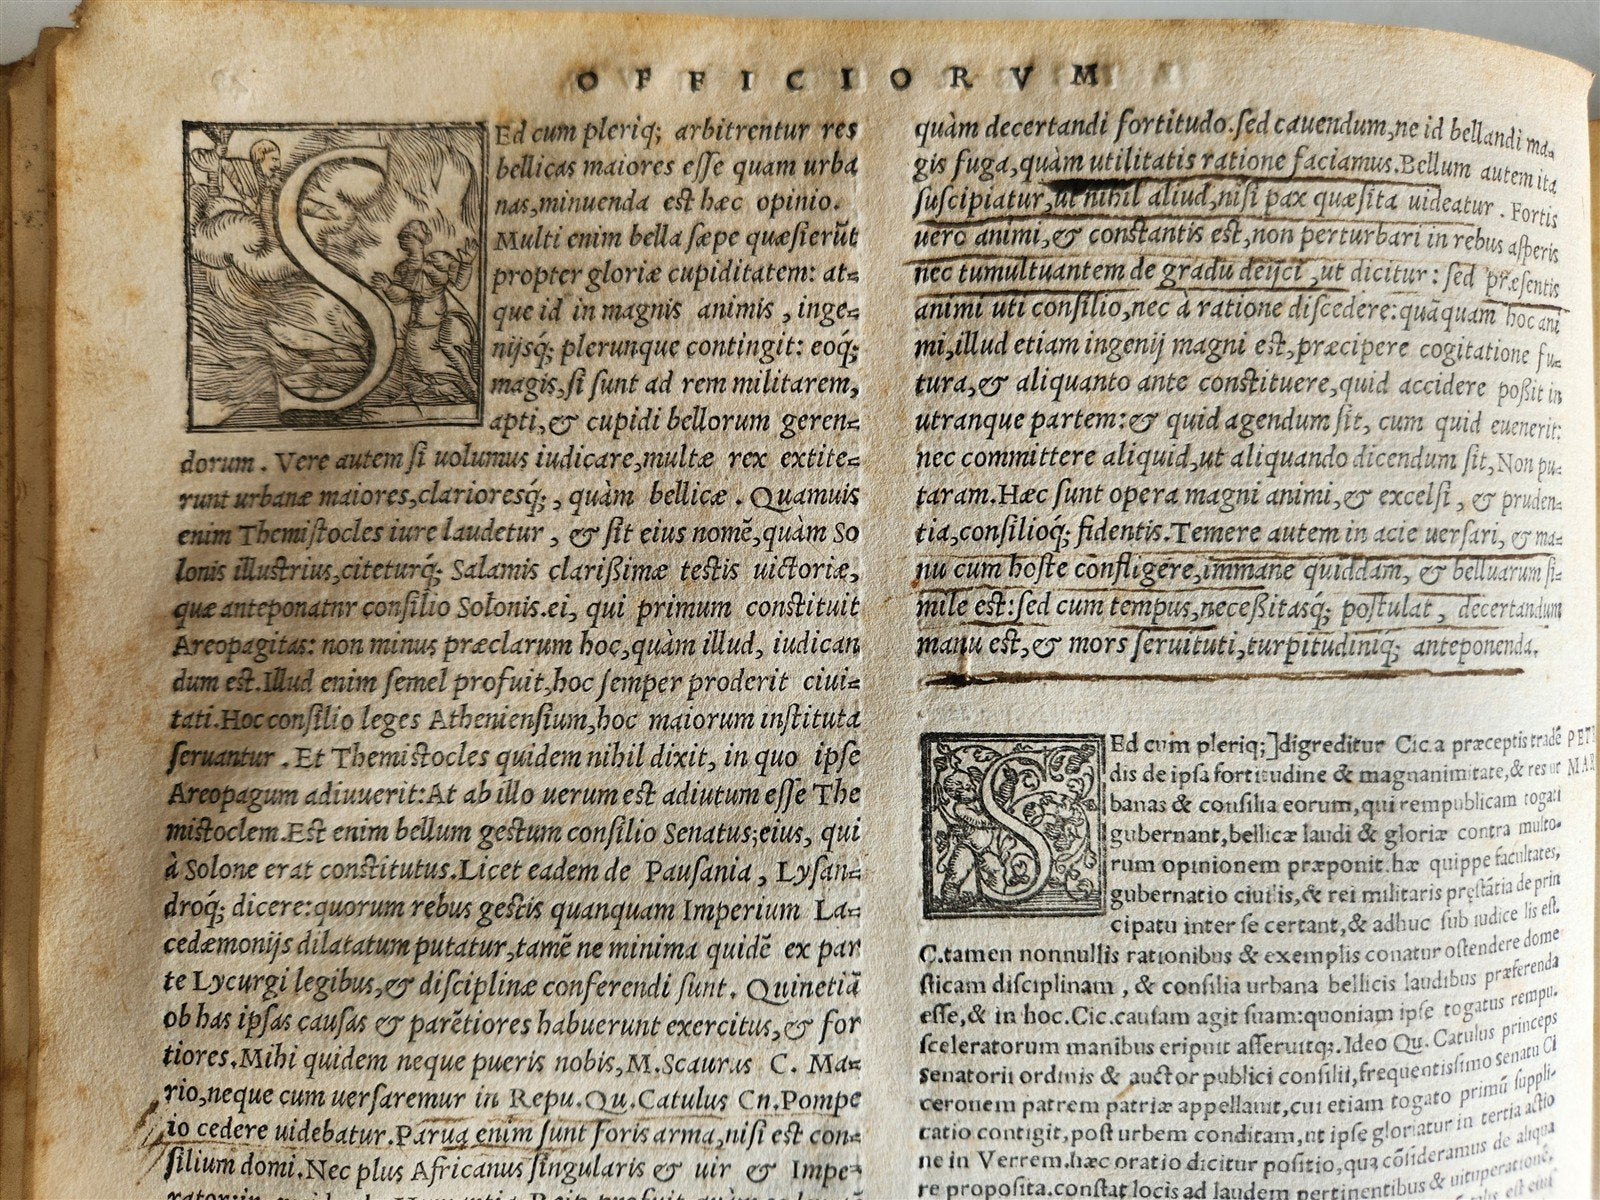 OFFICIORVM
SEd cum pleriq; arbitrentur res
bellicas maiores esse quam urba
nas,minuenda est hæc opinio.
Multi enim bella sæpe quæsierūt
propter gloriæ cupiditatem: at=
que id in magnis animis, inge=
nijsq́; plerunque contingit: eoq́;
magis,si sunt ad rem militarem,
apti,& cupidi bellorum geren=
dorum. Vere autem si uolumus iudicare,multæ rex extite=
runt urbanæ maiores,clarioresq́;, quàm bellicæ. Quamuis
enim Themistocles iure laudetur, & sit eius nomē,quàm So
lonis illustrius,citeturq́; Salamis clarißimæ testis uictoriæ,
quæ anteponatnr consilio Solonis.ei, qui primum constituit
Areopagitas: non minus præclarum hoc,quàm illud, iudican
dum est.Illud enim semel profuit,hoc semper proderit ciui=
tati.Hoc consilio leges Atheniensium,hoc maiorum instituta
seruantur. Et Themistocles quidem nihil dixit, in quo ipse
Areopagum adiuuerit:At ab illo uerum est adiutum esse The
mistoclem.Est enim bellum gestum consilio Senatus;eius, qui
à Solone erat constitutus.Licet eadem de Pausania, Lysan=
droq́; dicere:quorum rebus gestis quanquam Imperium La=
cedæmonijs dilatatum putatur,tamē ne minima quidē ex par
te Lycurgi legibus,& disciplinæ conferendi sunt. Quinetiā
ob has ipsas causas & parētiores habuerunt exercitus,& for
tiores.Mihi quidem neque pueris nobis,M.Scaurus C. Ma=
rio,neque cum uersaremur in Repu.Qu.Catulus Cn.Pompe
io cedere uidebatur.Parua enim sunt foris arma,nisi est con=
silium domi.Nec plus Africanus singularis & uir & Impe=
quàm decertandi fortitudo.sed cauendum,ne id bellandi ma=
gis fuga,quàm utilitatis ratione faciamus.Bellum autem ita
suscipiatur,ut nihil aliud,nisi pax quæsita uideatur. Fortis
uero animi,& constantis est,non perturbari in rebus asperis
nec tumultuantem de gradu deijci, ut dicitur: sed præsentis
animi uti consilio,nec à ratione discedere:quāquam hoc ani
mi,illud etiam ingenij magni est,præcipere cogitatione fu=
tura,& aliquanto ante constituere,quid accidere poßit in
utranque partem:& quid agendum sit, cum quid euenerit:
nec committere aliquid,ut aliquando dicendum sit,Non pu=
taram.Hæc sunt opera magni animi,& excelsi, & pruden=
tia,consilioq́; fidentis.Temere autem in acie uersari, & ma=
nu cum hoste confligere,immane quiddam, & belluarum si=
mile est:sed cum tempus,neceßitasq́; postulat, decertandum
manu est,& mors seruituti,turpitudiniq́; anteponenda.
SEd cum pleriq;]digreditur Cic.a præceptis tradē
dis de ipsa fortitudine & magnanimitate,& res ur
banas & consilia eorum,qui rempublicam togati
gubernant,bellicæ laudi & gloriæ contra multo-
rum opinionem præponit.hæ quippe facultates,
gubernatio ciuilis,& rei militaris pręstātia de prin
cipatu inter se certant,& adhuc sub iudice lis est.
C.tamen nonnullis rationibus & exemplis conatur ostendere dome
sticam disciplinam, & consilia urbana bellicis laudibus præferenda
esse,& in hoc.Cic.causam agit suam:quoniam ipse togatus rempu.
sceleratorum manibus eripuit asseruitq;.Ideo Qu. Catulus princeps
senatorii ordinis & auctor publici consilii,frequentissimo senatu Ci
ceronem patrem patriæ appellauit,cui etiam togato primū suppli-
catio contigit,post urbem conditam,ut ipse gloriatur in tertia actio
ne in Verrem.hæc oratio dicitur positio,qua cōsideramus de aliqua
re proposita.constat locis ad laudem pertinentibus & uituperationē,